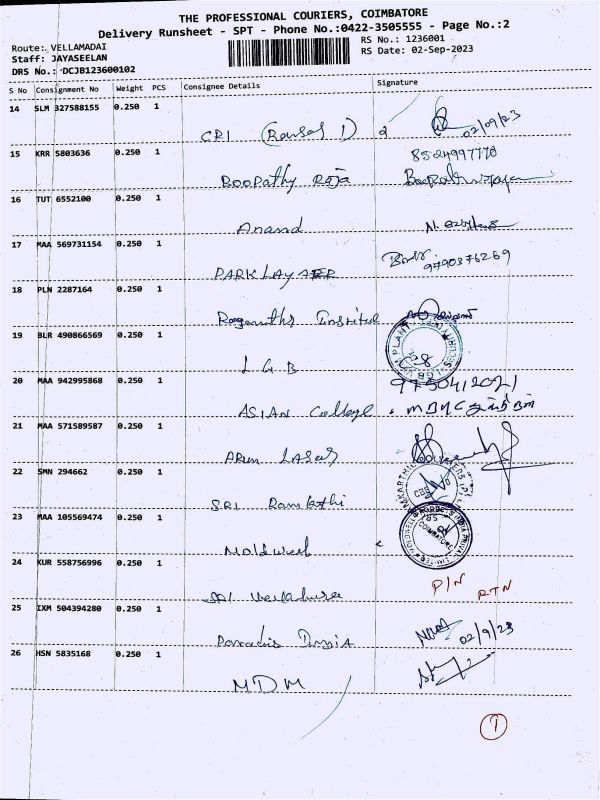 THE PROFESSIONAL COURIERS, COIMBATORE
Delivery Runsheet - SPT - Phone No.:0422-3505555 - Page No.:2
Route: VELLAMADAI
RS No.: 1236001
Staff: JAYASEELAN
RS Date: 02-Sep-2023
DRS No.: DCJB123600102
S No Consignment No Weight PCS Consignee Details Signature
14 SLM 327588155 0.250 1
CRI 02/09/23
15 KRR 5803636 0.250 1 8524997770
Boopathy Raja
16 TUT 6552100 0.250 1
Anand
17 MAA 569731154 0.250 1
PARK LAY 9790376269
18 PLN 2287164 0.250 1
19 BLR 490866569 0.250 1
L G B
20 MAA 942995868 0.250 1
ASIAN College
21 MAA 571589587 0.250 1
ARUN LASER
22 SMN 294662 0.250 1
SRI
23 MAA 105569474 0.250 1
COIMBATORE
24 KUR 558756996 0.250 1
P/N RTN
25 IXM 504394280 0.250 1
02/9/23
26 HSN 5835168 0.250 1
MDM
1